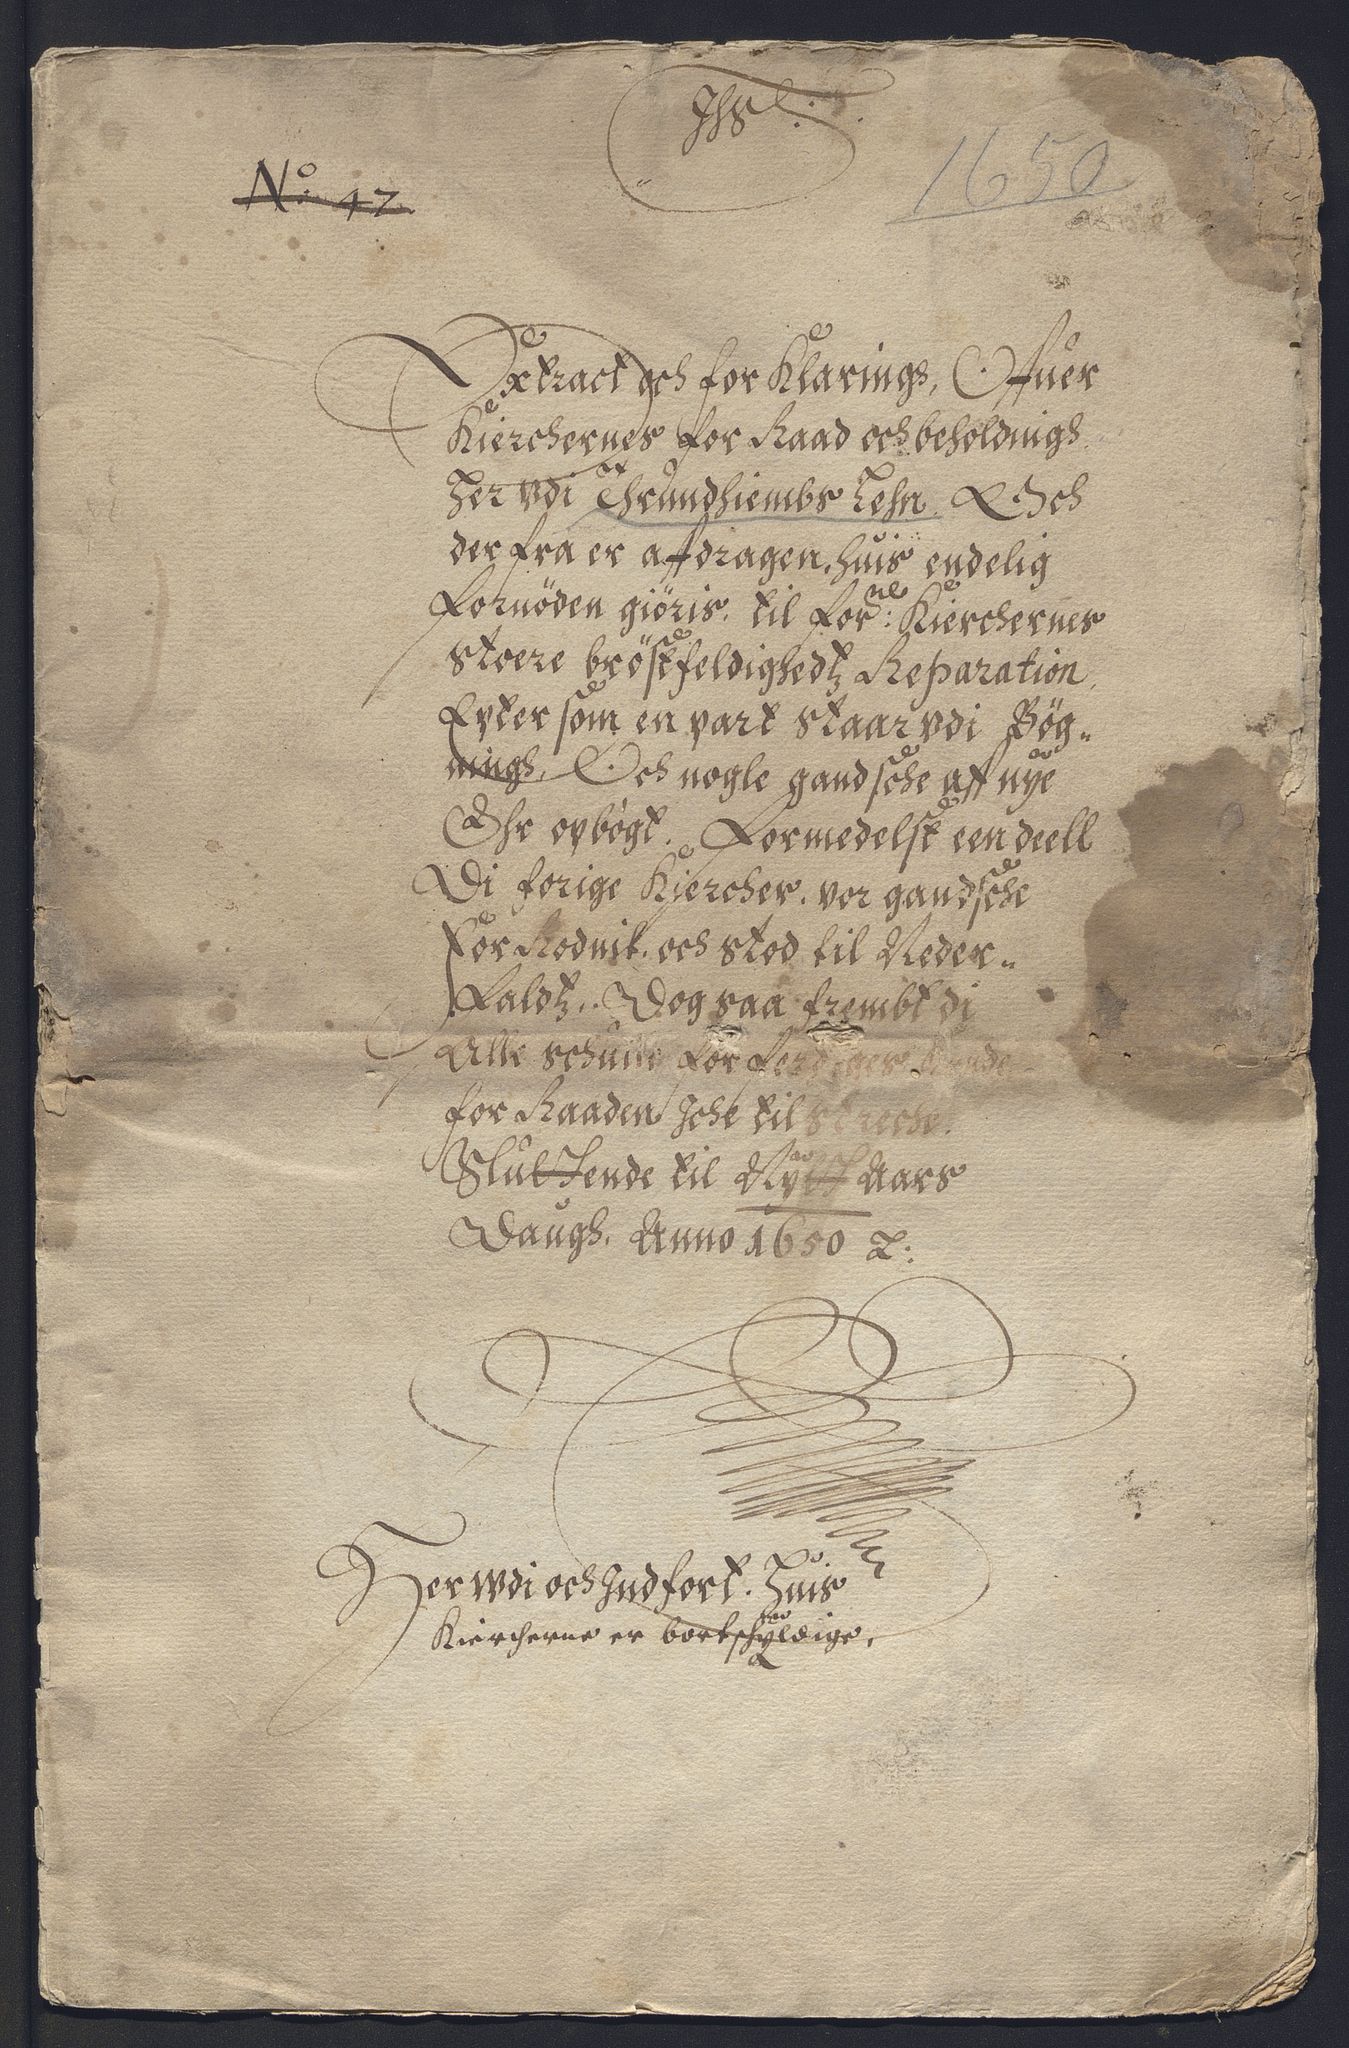 Ihs
1650
No: 47
Extract och forKlarings, Offuer
Kierchernes forRaad och beholdnigh
Her vdi Thrundhiembs Lehn. Och
der fra er affdragen, huis endelig
fornöden giöris, til forne: Kierchernes
stoere bröstfeldighedtz Reparation
Epter som en part staar vdi Bög-
nings, Och nogle gandsche aff nye
Ehr opbögt. Formedelst een deell
Di forige Kiercher, vor gandsche
forRodnit, och stod til Neder-
faldtz. Dog saa frembt di
Alle schulle forferdiges
forRaaden Iche til streche.
Sluttende til Nytt Aars
Daugh. Anno 1650
Her wdi och Indfort. Huis
Kiercherne er bortschyldige.